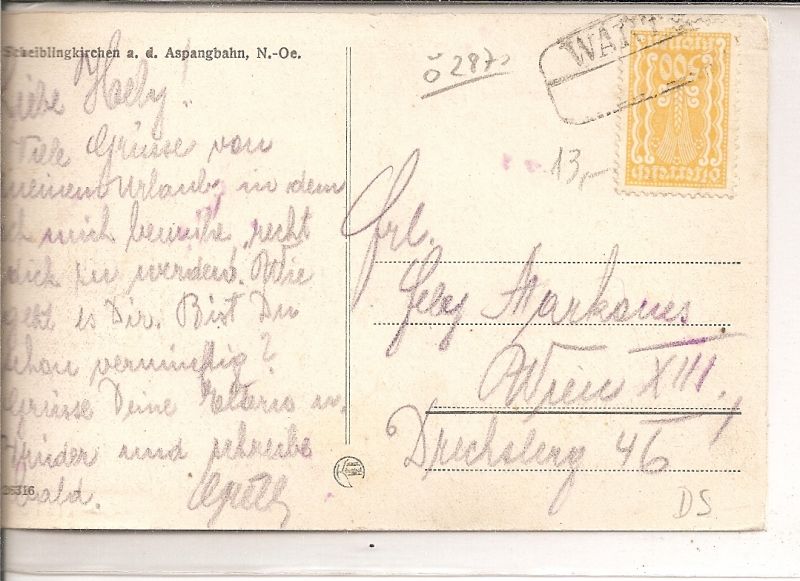 Scheiblingkirchen a. d. Aspangbahn, N.-Oe.
Liebe Helly!
Viele Grüsse von
meinem Urlaub, in dem
ich mich bemühe, recht
dick zu werden. Wie
geht es Dir. Bist Du
schon vernünftig?
Grüsse Deine Eltern u.
Brüder und schreibe
bald. Gretl
26316
ö 287
WA
300
Österreich
13,-
Frl.
Helly Markones
Wien XIII
Drechslerg 46
6
DS